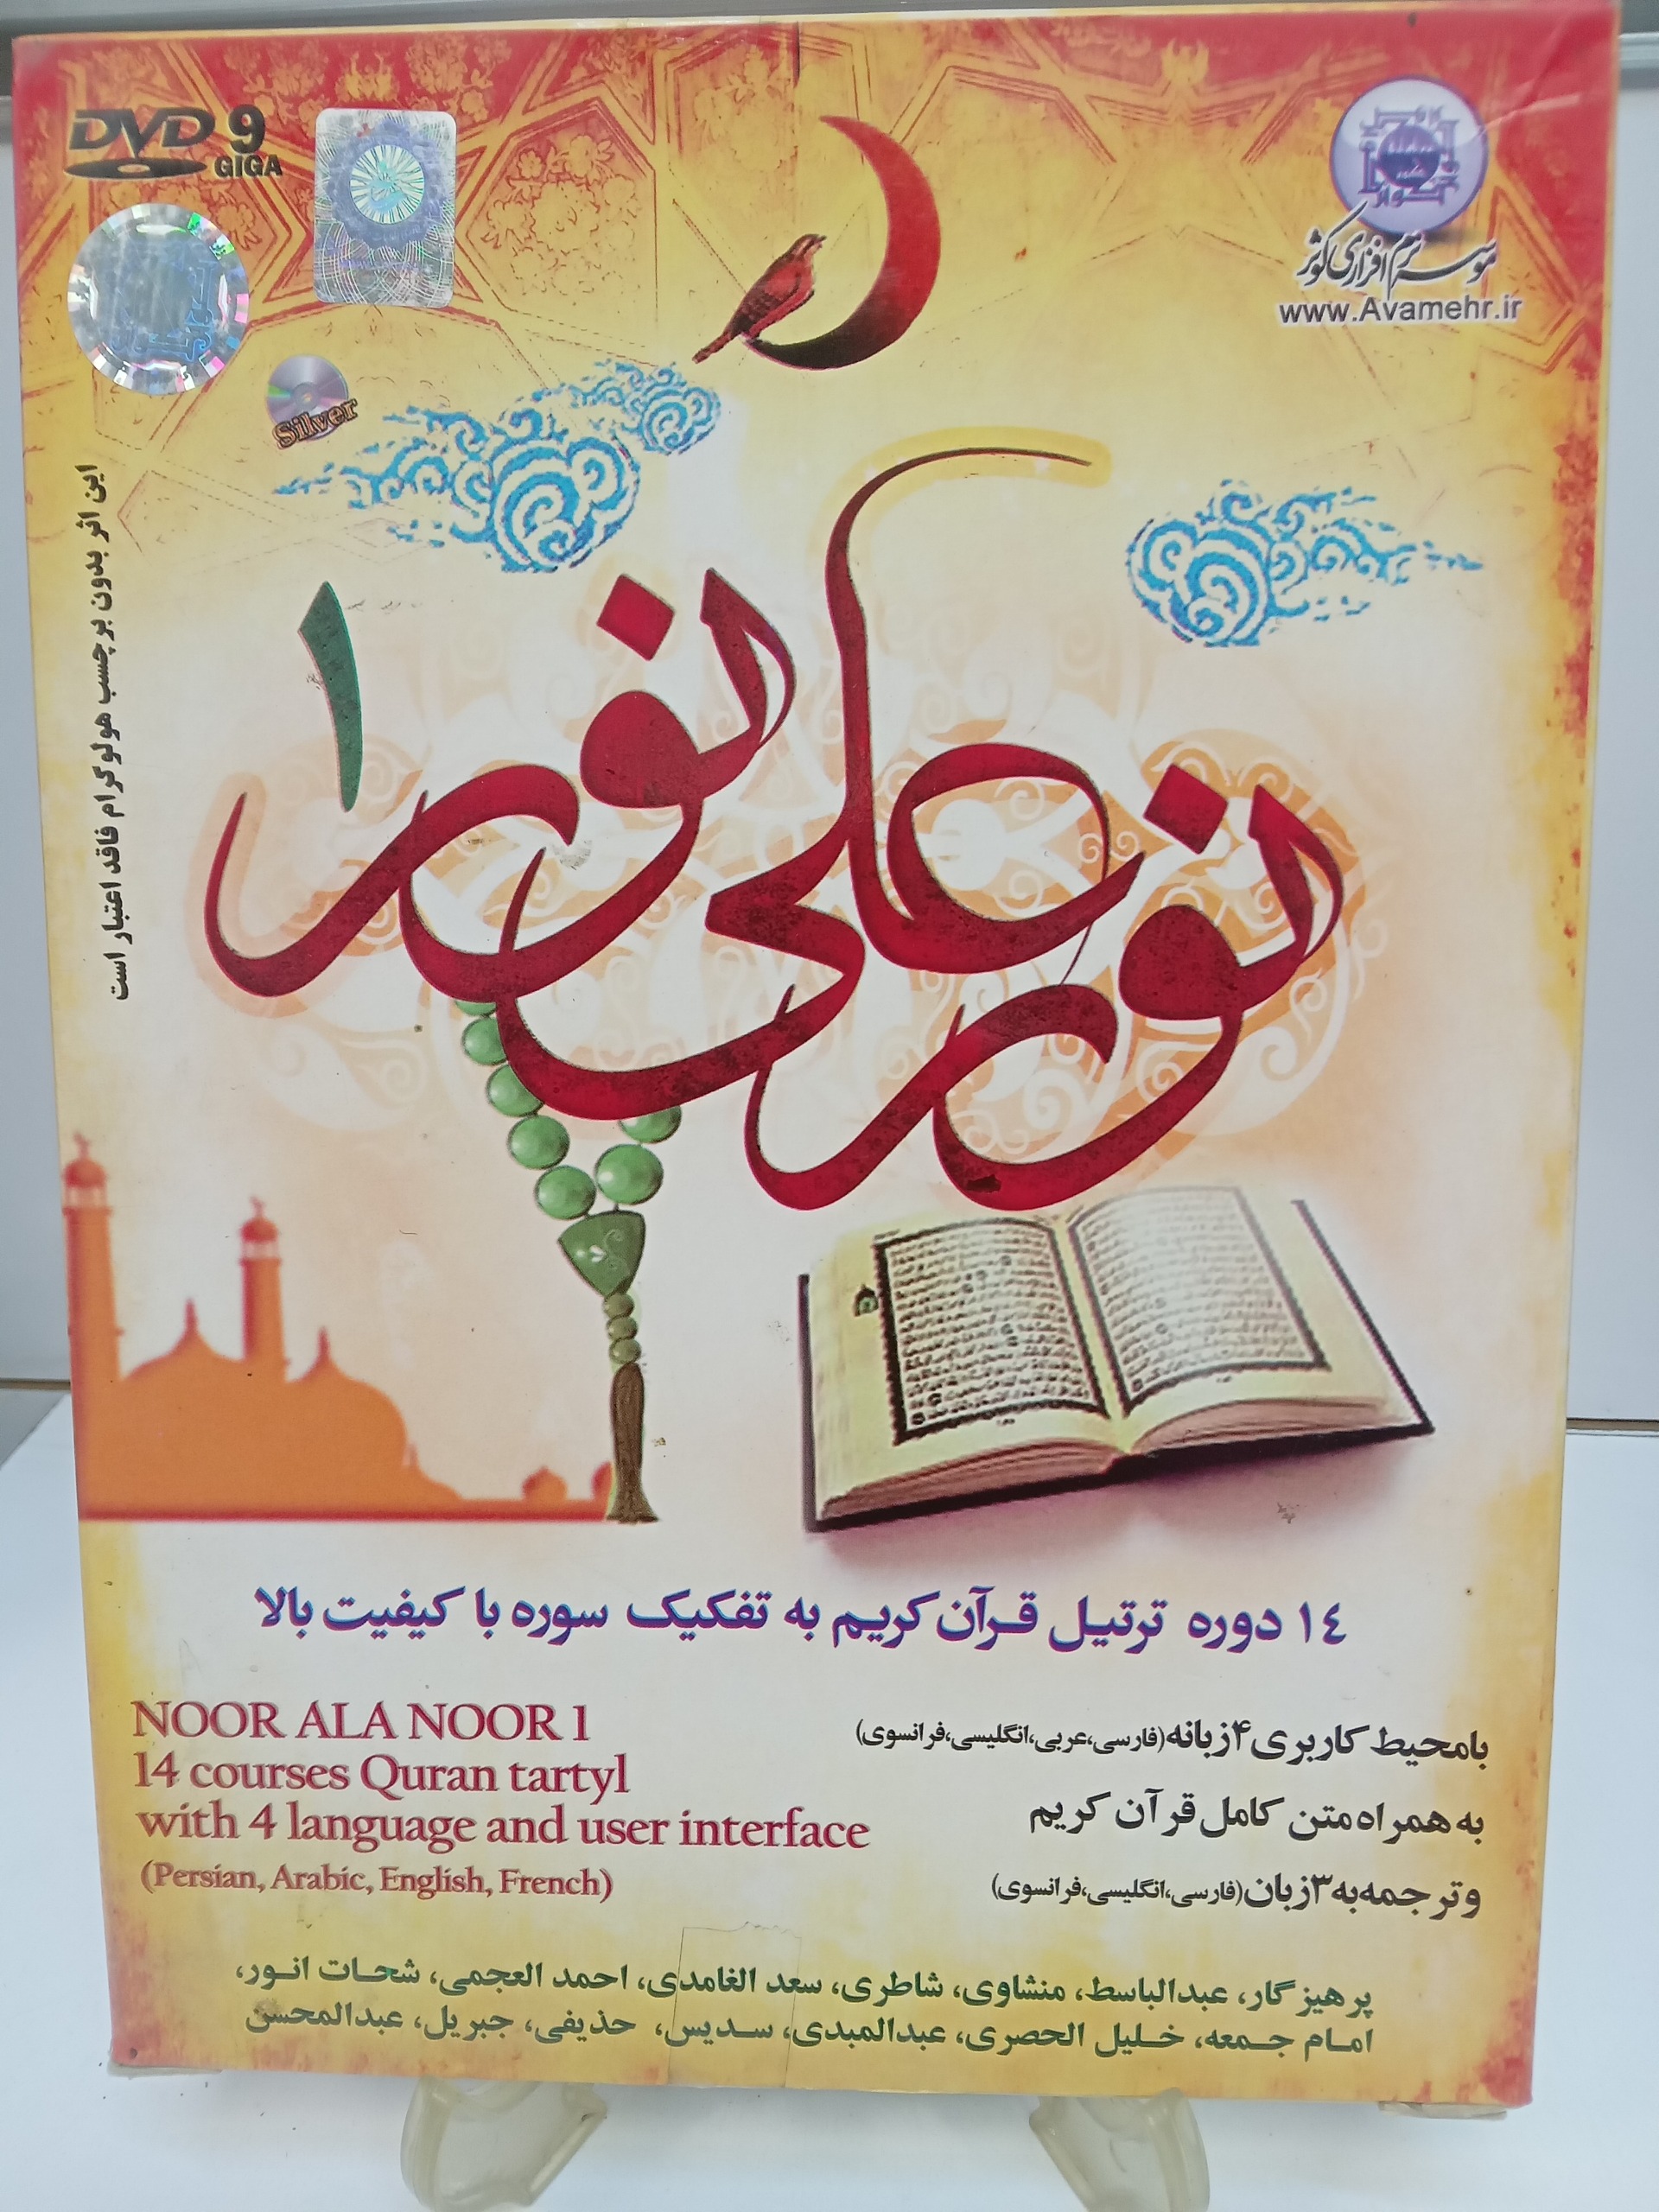 DVD 9
GIGA
موسسه نرم افزاری کوثر
www.Avamehr.ir
Silver
این اثر بدون برچسب هولوگرام فاقد اعتبار است
نور علی نور ۱
۱۴ دوره ترتیل قرآن کریم به تفکیک سوره با کیفیت بالا
NOOR ALA NOOR 1
14 courses Quran tartyl
with 4 language and user interface
(Persian, Arabic, English, French)
بامحیط کاربری ۴ زبانه (فارسی،عربی،انگلیسی،فرانسوی)
به همراه متن کامل قرآن کریم
و ترجمه به ۳ زبان (فارسی،انگلیسی،فرانسوی)
پرهیزگار، عبدالباسط، منشاوی، شاطری، سعد الغامدی، احمد العجمی، شحات انور،
امام جمعه، خلیل الحصری، عبدالمبدی، سدیس، حذیفی، جبریل، عبدالمحسن